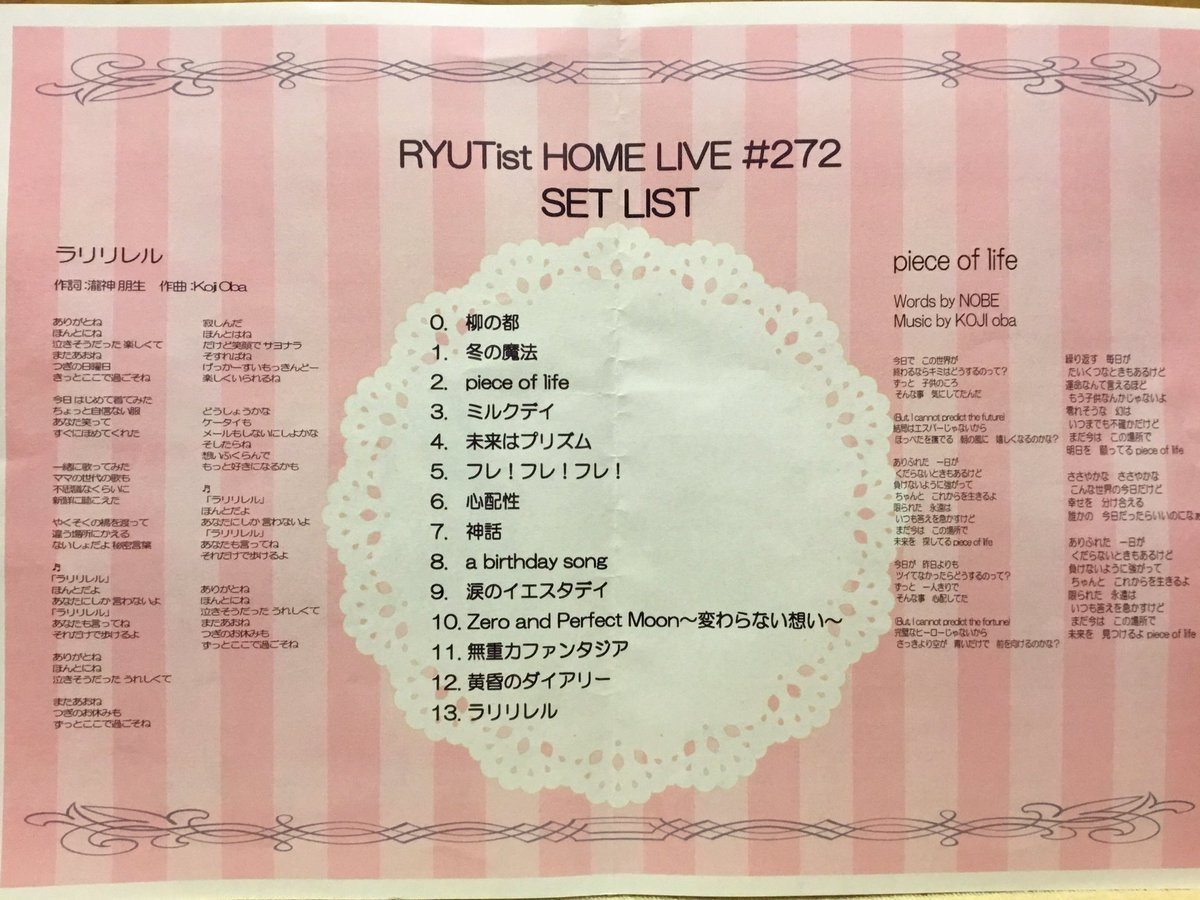 RYUTist HOME LIVE #272
SET LIST
ラリリレル
作詞:瀧神 朋生 作曲:Koji Oba
ありがとね
ほんとにね
泣きそうだった 楽しくて
またあおね
つぎの日曜日
きっとここで過ごそね
今日 はじめて着てみた
ちょっと自信ない服
あなた笑って
すぐにほめてくれた
一緒に歌ってみた
ママの世代の歌も
不思議なくらいに
新鮮に聴こえた
やくそくの橋を渡って
違う場所にかえる
ないしょだよ 秘密言葉
♬
「ラリリレル」
ほんとだよ
あなたにしか 言わないよ
「ラリリレル」
あなたも言ってね
それだけで歩けるよ
ありがとね
ほんとにね
泣きそうだった うれしくて
またあおね
つぎのお休みも
ずっとここで過ごそね
寂しんだ
ほんとはね
だけど笑顔で サヨナラ
そすればね
げっかーすいもっきんどー
楽しくいられるね
どうしょうかな
ケータイも
メールもしないにしよかな
そしたらね
想いふくらんで
もっと好きになるかも
♬
「ラリリレル」
ほんとだよ
あなたにしか 言わないよ
「ラリリレル」
あなたも言ってね
それだけで歩けるよ
ありがとね
ほんとにね
泣きそうだった うれしくて
またあおね
つぎのお休みも
ずっとここで過ごそね
0. 柳の都
1. 冬の魔法
2. piece of life
3. ミルクデイ
4. 未来はプリズム
5. フレ!フレ!フレ!
6. 心配性
7. 神話
8. a birthday song
9. 涙のイエスタデイ
10. Zero and Perfect Moon〜変わらない想い〜
11. 無重力ファンタジア
12. 黄昏のダイアリー
13. ラリリレル
piece of life
Words by NOBE
Music by KOJI oba
今日で この世界が
終わるならキミはどうするのって?
ずっと 子供のころ
そんな事 気にしてたんだ
(But I cannot predict the future)
結局はエスパーじゃないから
ほっぺたを撫でる 朝の風に 嬉しくなるのかな?
ありふれた 一日が
くだらないときもあるけど
負けないように強がって
ちゃんと これからを生きるよ
限られた 永遠は
いつも答えを急かすけど
まだ今は この場所で
未来を 探してる piece of life
今日が 昨日よりも
ツイてなかったらどうするのって?
ずっと 一人きりで
そんな事 心配してた
(But I cannot predict the fortune)
完璧なヒーローじゃないから
さっきより空が 青いだけで 前を向けるのかな?
繰り返す 毎日が
たいくつなときもあるけど
運命なんて言えるほど
もう子供なんかじゃないよ
零れそうな 幻は
いつまでも不確かだけど
まだ今は この場所で
明日を 願ってる piece of life
ささやかな ささやかな
こんな世界の今日だけど
幸せを 分け合える
誰かの 今日だったらいいのにな
ありふれた 一日が
くだらないときもあるけど
負けないように強がって
ちゃんと これからを生きるよ
限られた 永遠は
いつも答えを急かすけど
まだ今は この場所で
未来を 見つけるよ piece of life